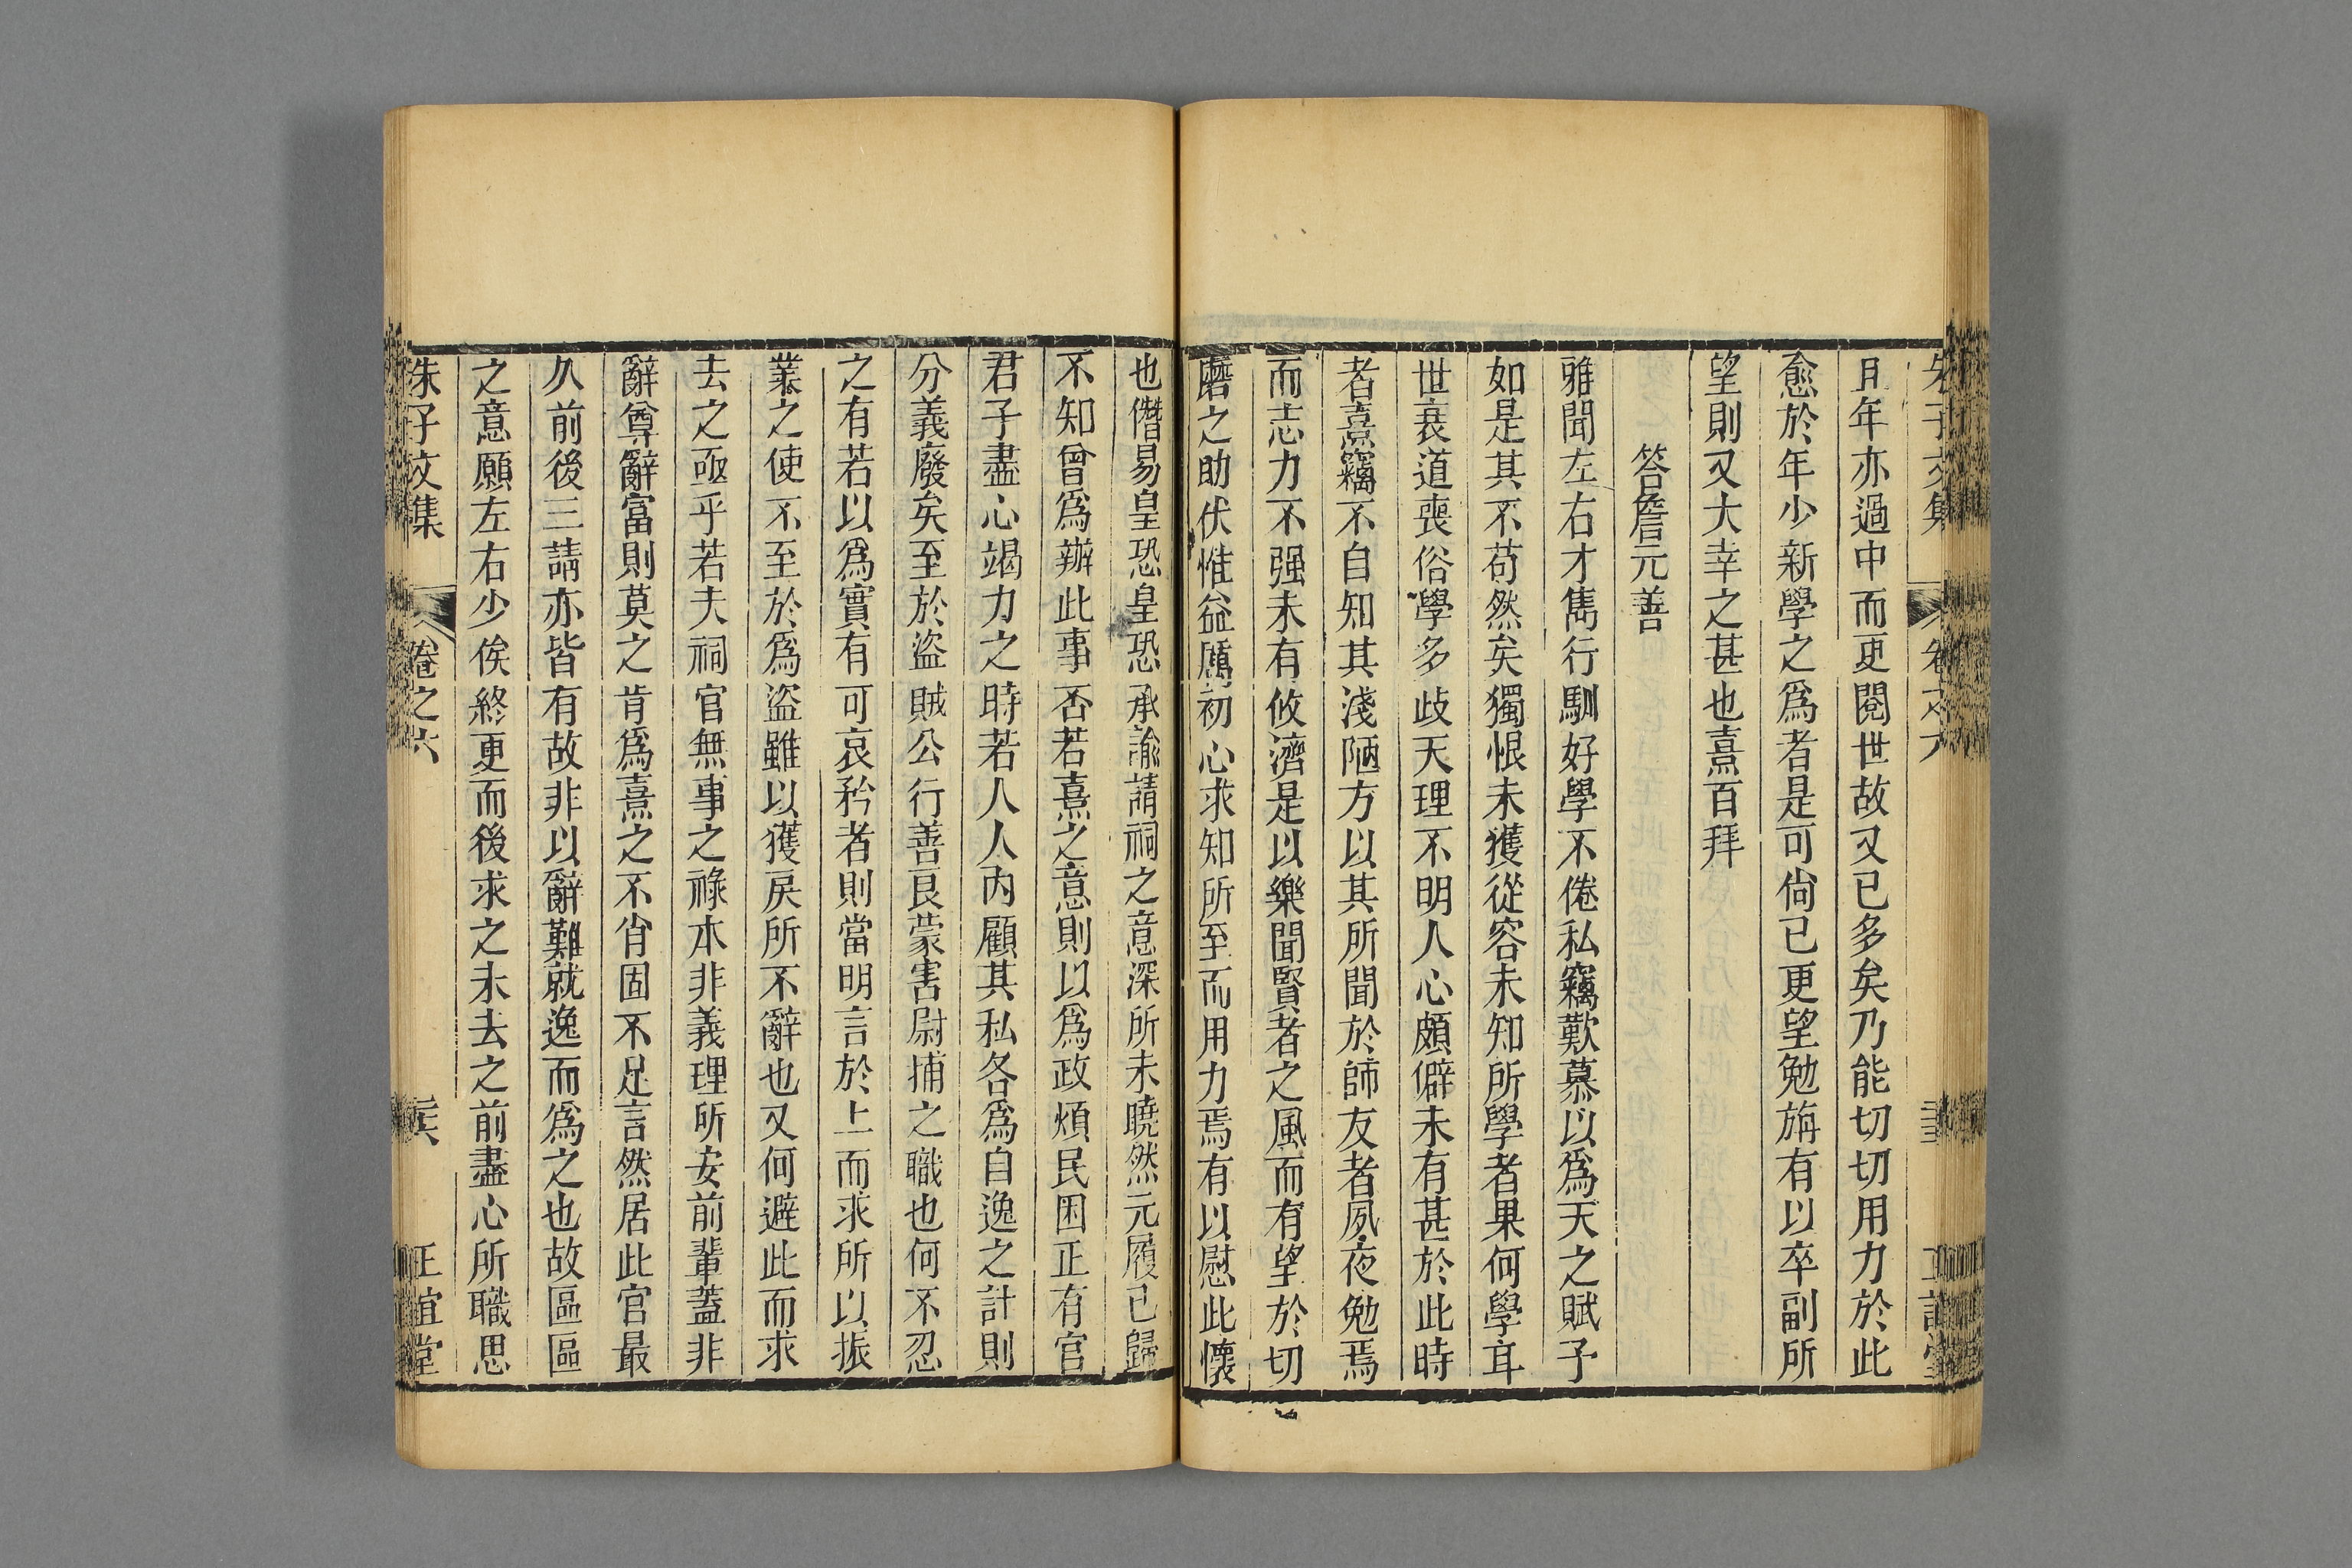 朱子文集 卷之六 正誼堂
且年亦過中而更閱世故又已多矣乃能切切用力於此
愈於年少新學之爲者是可尙已更望勉旃有以卒副所
望則又大幸之甚也熹百拜
答詹元善
雅聞左右才雋行馴好學不倦私竊歎慕以爲天之賦予
如是其不苟然矣獨恨未獲從容未知所學者果何學耳
世衰道喪俗學多歧天理不明人心頗僻未有甚於此時
者熹竊不自知其淺陋方以其所聞於師友者夙夜勉焉
而志力不强未有攸濟是以樂聞賢者之風而有望於切
磨之助伏惟益厲初心求知所至而用力焉有以慰此懷
也僭易皇恐皇恐承諭請祠之意深所未曉然元履已歸
不知曾爲辦此事否若熹之意則以爲政煩民困正有官
君子盡心竭力之時若人人內顧其私各爲自逸之計則
分義廢矣至於盜賊公行善良蒙害尉捕之職也何不忍
之有若以爲實有可哀矜者則當明言於上而求所以振
業之使不至於爲盜雖以獲戾所不辭也又何避此而求
去之亟乎若夫祠官無事之祿本非義理所安前輩蓋非
辭尊辭富則莫之肯爲熹之不肖固不足言然居此官最
久前後三請亦皆有故非以辭難就逸而爲之也故區區
之意願左右少俟終更而後求之未去之前盡心所職思
朱子文集 卷之六 正誼堂